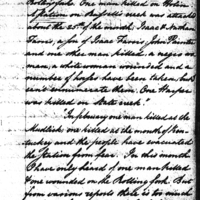 Rollingfork. One man killed on Nolin
Station on Russell's creek was attacked
about the 25th of the month. Isaac & Nathan
Farris, a son of Isaac Farris John Painter
and one other man killed. One
man, a white woman wounded and a
number of horses have been taken, but
can enumerate them. One Harper
was killed on State creek."
"In february one man killed at the
one killed at the mouth of Ken-
tuckey and the people have evacuated
the Station from fear. In this month
I have only heard of one man killed
& one wounded on the Rollingfork. But
from various reports there is too much